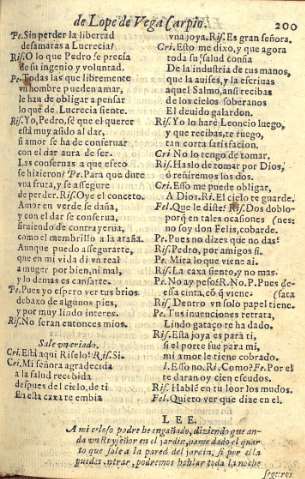 de Lope de Vega Carpio.
200
Pe. Sin perder la libertad
desamaras a Lucrecia?
Ris. O lo que Pedro se precia
de su ingenio y voluntad.
Pe. Todas las que libremente
vn hombre pueden amar,
le han de obligar a pensar
lo que de Lucrecia siente.
Ris. Yo, Pedro, sè que el querer
està muy asido al dar,
si amor se ha de conseruar
con el dar aura de ser.
Las conseruas a que efeto
se hizieron? Pe. Para que dure
vna fruta, y se assegure
de perder. Ris. Oye el conceto.
Amor en verde se daña,
y con el dar se conserua,
siruiendo de contrayerua,
como el membrillo a la araña.
Aunque puedo assegurarte,
que en mi vida di vn real
a muger por bien, ni mal,
y lo demas es cansarte.
Pe. Pues yo espero ver tus brios
debaxo de algunos pies,
y por muy lindo interes.
Ris. No seran entonces mios.
Sale vn criado.
Cri. Està aqui Riselo? Ris. Si.
Cri. Mi señora agradecida
a la salud recebida
despues del cielo, de ti
En esta caxa te embia
vna joya. Ris. Es gran señora.
Cri. Esto me dixo, y que agora
toda su salud confia
De la industria de tus manos,
que la auises, y la escriuas
aquel Salmo, ansi recibas
de los cielos soberanos
El deuido galardon.
Ris. Yo lo harè Leoncio luego,
y que recibas, te ruego,
tan corta satisfacion.
Cri. No lo tengo de tomar.
Ris. Haslo de tomar por Dios,
ò reñiremos los dos.
Cri. Esso me puede obligar,
A Dios. Ri. El cielo te guarde.
Fel. Que le diste? Ris. Dos doblo-
porq̃ en tales ocasiones (nes:
no soy don Felis, cobarde.
Pe. Pues no dizes que no das?
Ris. Pedro, por amigos si.
Pe. Mira lo que viene aì.
Ris. La caxa siento, y no mas.
Pe. No ay peso? R. No. P. Pues de-
essa cinta, ò q̃ viene? (sata
Ris. Dentro vn solo papel tiene.
Pe. Tus inuenciones retrata,
Lindo gataço te ha dado.
Ris. Esta joya es para ti,
si el porte fue para mi,
mi amor le tiene cobrado.
Esso no, Ri. Como? Fe. Por el
te daran oy cien escudos.
Ris. Hablè en tu loor los mudos.
Fel. Quiero ver que dize en el.
L E E.
A mi zeloso padre he engañado, diziendo que an-
to que sale a la pared del jardin, si por ella